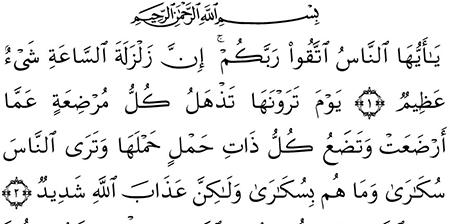 بِسْمِ اللَّهِ الرَّحْمَٰنِ الرَّحِيمِ
يَٰٓأَيُّهَا ٱلنَّاسُ ٱتَّقُوا۟ رَبَّكُمْ ۚ إِنَّ زَلْزَلَةَ ٱلسَّاعَةِ شَىْءٌ
عَظِيمٌ ﴿١﴾ يَوْمَ تَرَوْنَهَا تَذْهَلُ كُلُّ مُرْضِعَةٍ عَمَّآ
أَرْضَعَتْ وَتَضَعُ كُلُّ ذَاتِ حَمْلٍ حَمْلَهَا وَتَرَى ٱلنَّاسَ
سُكَٰرَىٰ وَمَا هُم بِسُكَٰرَىٰ وَلَٰكِنَّ عَذَابَ ٱللَّهِ شَدِيدٌ ﴿٢﴾